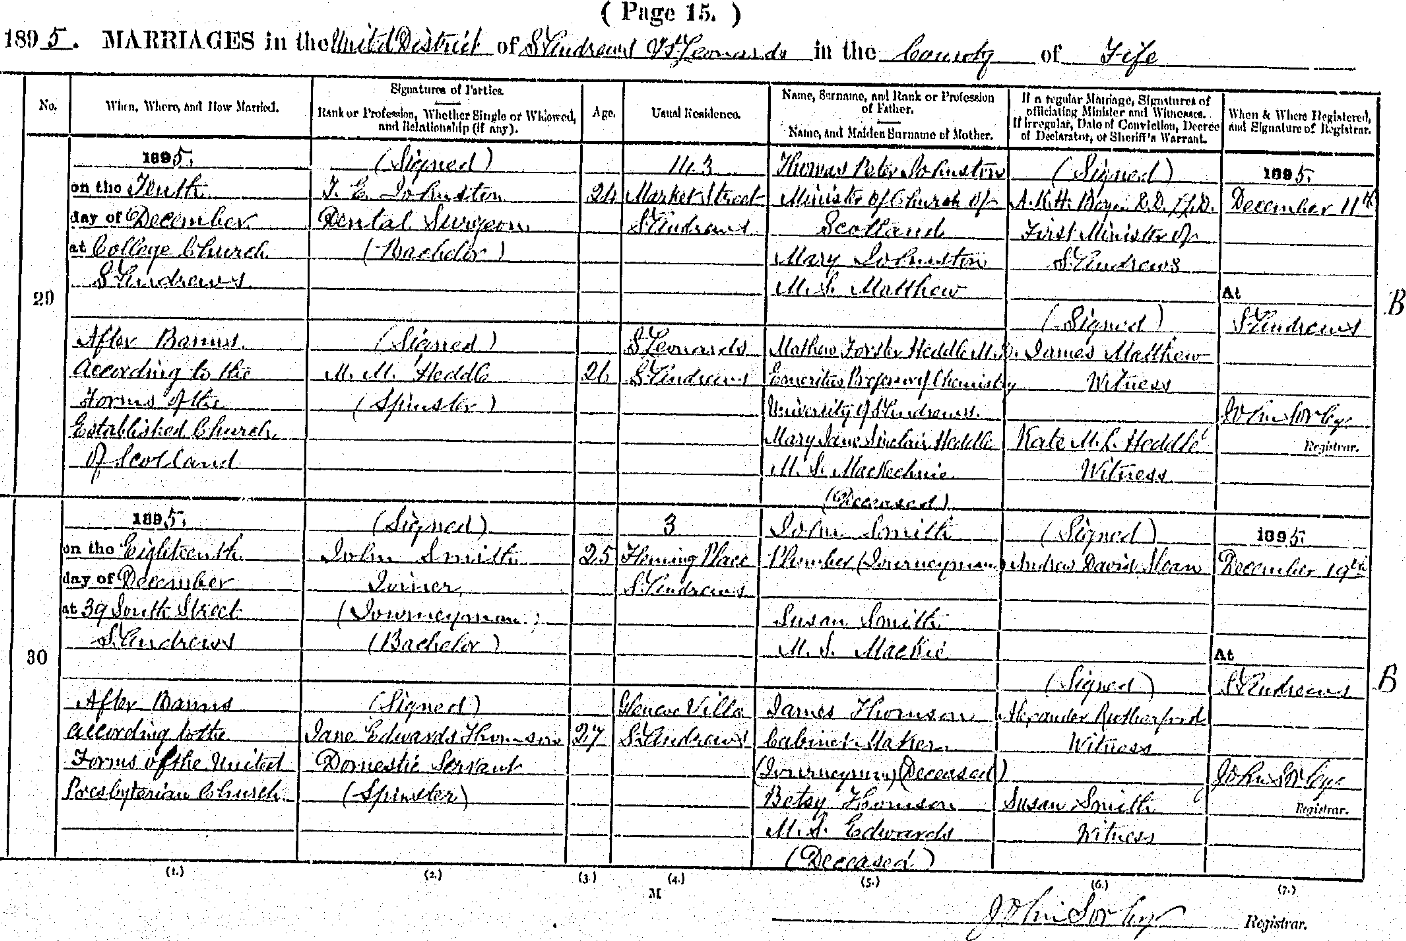 ( Page 15. )
1895. MARRIAGES in the United District of St Andrews & St Leonards in the County of Fife
No.
When, Where, and How Married.
Signatures of Parties.
Rank or Profession, Whether Single or Widowed, and Relationship (if any).
Age.
Usual Residence.
Name, Surname, and Rank or Profession of Father.
Name, and Maiden Surname of Mother.
If a regular Marriage, Signatures of officiating Minister and Witnesses.
If irregular, Date of Conviction, Decree of Declarator, or Sheriff's Warrant.
When & Where Registered, and Signature of Registrar.
29
1895.
on the Tenth
day of December
at College Church
St Andrews
After Banns
According to the
Forms of the
Established Church
of Scotland
(Signed)
T. E. Johnston
Dental Surgeon
(Bachelor)
(Signed)
M. M. Heddle
(Spinster)
24
26
143
Market Street
St Andrews
St Leonards
St Andrews
Thomas Peter Johnston
Minister of Church of
Scotland
Mary Johnston
M. S. Matthew
Mathew Forster Heddle M.D.
Emeritus Professor of Chemistry
University of St Andrews.
Mary Jane Sinclair Heddle
M. S. Mackechnie
(Deceased)
(Signed)
A. K. H. Boyd D.D. LL.D.
First Minister of
St Andrews
(Signed)
James Matthew
Witness
Kate M. L. Heddle
Witness
1895.
December 11th
At
St Andrews
John Sorley
Registrar.
B
30
1895.
on the Eighteenth
day of December
at 39 South Street
St Andrews
After Banns
according to the
Forms of the United
Presbyterian Church
(Signed)
John Smith
Joiner
(Journeyman)
(Bachelor)
(Signed)
Jane Edwards Thomson
Domestic Servant
(Spinster)
25
27
3
Fleming Place
St Andrews
Geneva Villa
St Andrews
John Smith
Plumber (Journeyman)
Susan Smith
M. S. Mackie
James Thomson
Cabinet Maker
(Journeyman) (Deceased)
Betsy Thomson
M. S. Edwards
(Deceased)
(Signed)
Andrew David Sloan
(Signed)
Alexander Rutherford
Witness
Susan Smith
Witness
1895.
December 19th
At
St Andrews
John Sorley
Registrar.
B
(1.) (2.) (3.) (4.) (5.) (6.) (7.)
M
John Sorley Registrar.